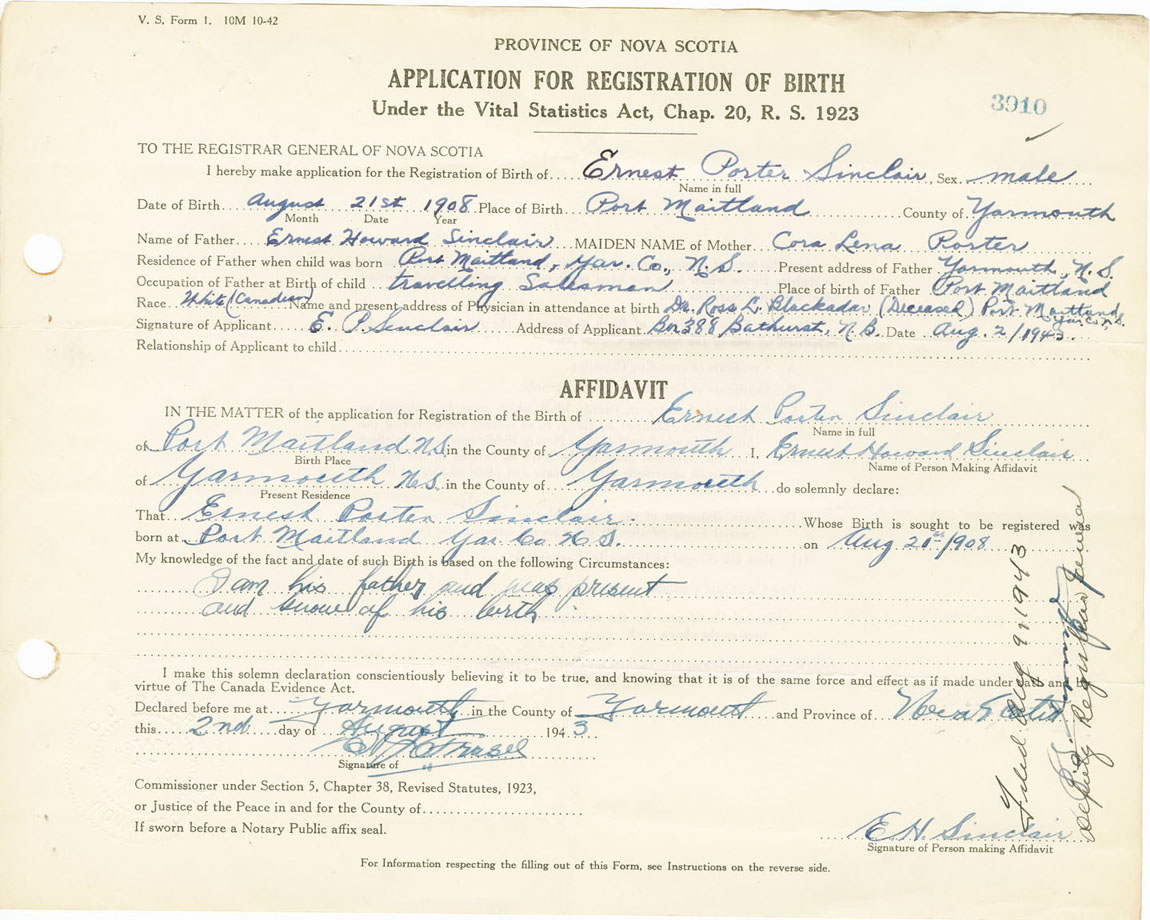 V. S. Form 1. 10M 10-42
PROVINCE OF NOVA SCOTIA
APPLICATION FOR REGISTRATION OF BIRTH
Under the Vital Statistics Act, Chap. 20, R. S. 1923
3910
TO THE REGISTRAR GENERAL OF NOVA SCOTIA
I hereby make application for the Registration of Birth of Ernest Porter Sinclair, Sex male
Name in full
Date of Birth August 21st 1908 Place of Birth Port Maitland County of Yarmouth
Month Date Year
Name of Father Ernest Howard Sinclair MAIDEN NAME of Mother Cora Lena Porter
Residence of Father when child was born Port Maitland, Yar. Co., N.S. Present address of Father Yarmouth, N.S.
Occupation of Father at Birth of child travelling Salesman Place of birth of Father Port Maitland
Race White (Canadian) Name and present address of Physician in attendance at birth Dr. Ross L. Blackadar (Deceased) Port Maitland Yar. Co. N.S.
Signature of Applicant E. P. Sinclair Address of Applicant Box 388 Bathurst, N.B. Date Aug. 2/1943.
Relationship of Applicant to child
AFFIDAVIT
IN THE MATTER of the application for Registration of the Birth of Ernest Porter Sinclair
Name in full
of Port Maitland N.S. in the County of Yarmouth I, Ernest Howard Sinclair
Birth Place Name of Person Making Affidavit
of Yarmouth N.S. in the County of Yarmouth do solemnly declare:
Present Residence
That Ernest Porter Sinclair Whose Birth is sought to be registered was
born at Port Maitland Yar Co N.S. on Aug 21st 1908
My knowledge of the fact and date of such Birth is based on the following Circumstances:
I am his father and was present
and know of his birth
I make this solemn declaration conscientiously believing it to be true, and knowing that it is of the same force and effect as if made under oath and by
virtue of The Canada Evidence Act.
Declared before me at Yarmouth in the County of Yarmouth and Province of Nova Scotia
this 2nd day of August 1943
Signature of
Commissioner under Section 5, Chapter 38, Revised Statutes, 1923,
or Justice of the Peace in and for the County of
If sworn before a Notary Public affix seal.
E H. Sinclair
Signature of Person making Affidavit
For Information respecting the filling out of this Form, see Instructions on the reverse side.
Filed Aug 9th 1943
Deputy Registrar General